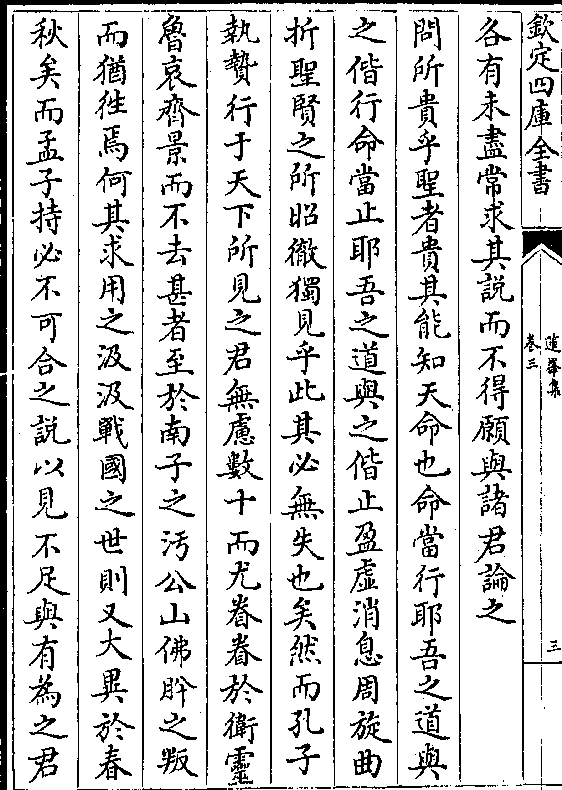 欽定四庫全書
卷三
三
各有未盡常求其說而不得願與諸君論之
問所貴乎聖者貴其能知天命也命當行耶吾之道與
之偕行命當止耶吾之道與之偕止盈虛消息周旋曲
折聖賢之所昭徹獨見乎此其必無失也矣然而孔子
執贄行于天下所見之君無慮數十而尤眷眷於衛靈
魯哀齊景而不去甚者至於南子之汚公山佛肸之叛
而猶徃焉何其求用之汲汲戰國之世則又大異於春
秋矣而孟子持必不可合之說以見不足與有為之君